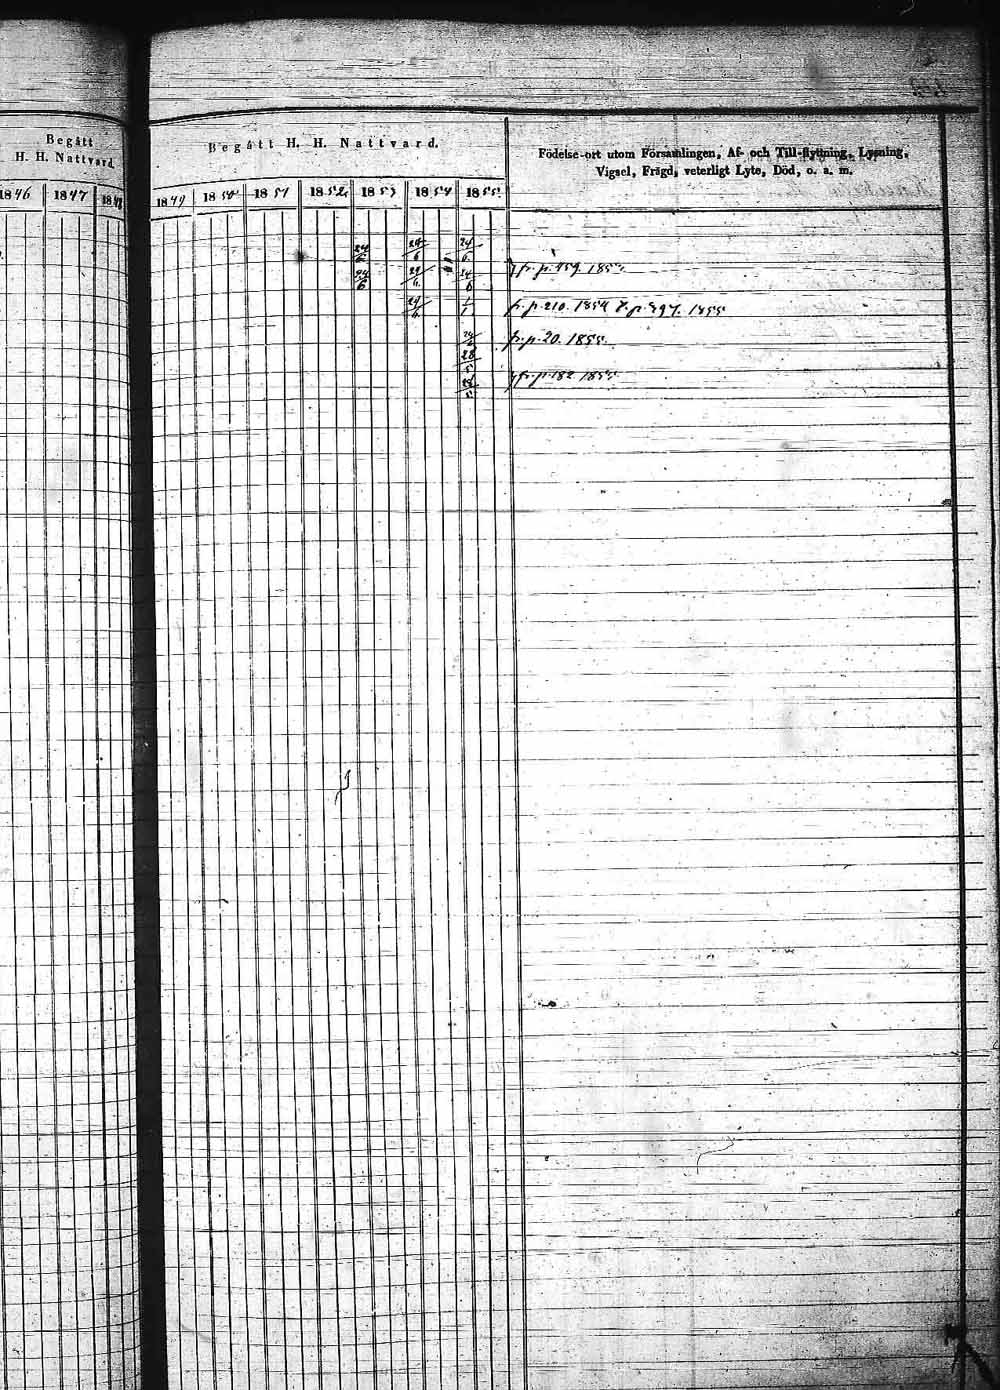 Begått
H. H. Nattvard.
Begått H. H. Nattvard.
Födelse-ort utom Församlingen, Af- och Till-flyttning, Lysning,
Vigsel, Frägd, veterligt Lyte, Död, o. s. m.
1846 1847 1848
1849 1850 1851 1852 1853 1854 1855
24/6 24/6 24/6
24/6 24/6 24/6 fr. p. 459. 1853
24/6 1/1 fr. p. 210. 1854 t. p. 397. 1855
24/6 fr. p. 20. 1855
28/5
28/5 fr. p. 182 1855